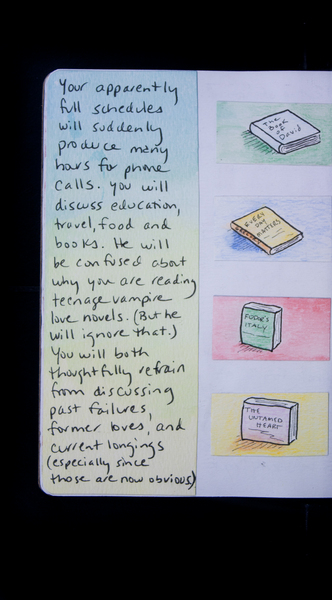 Your apparently
full schedules
will suddenly
produce many
hours for phone
calls. You will
discuss education,
travel, food and
books. He will
be confused about
why you are reading
teenage vampire
love novels. (But he
will ignore that.)
You will both
thoughtfully refrain
from discussing
past failures,
former loves, and
current longings
(especially since
those are now obvious)
THE
Book
of
David
EVERY
DAY
MATTERS
FODOR'S
ITALY
THE
UNTAMED
HEART